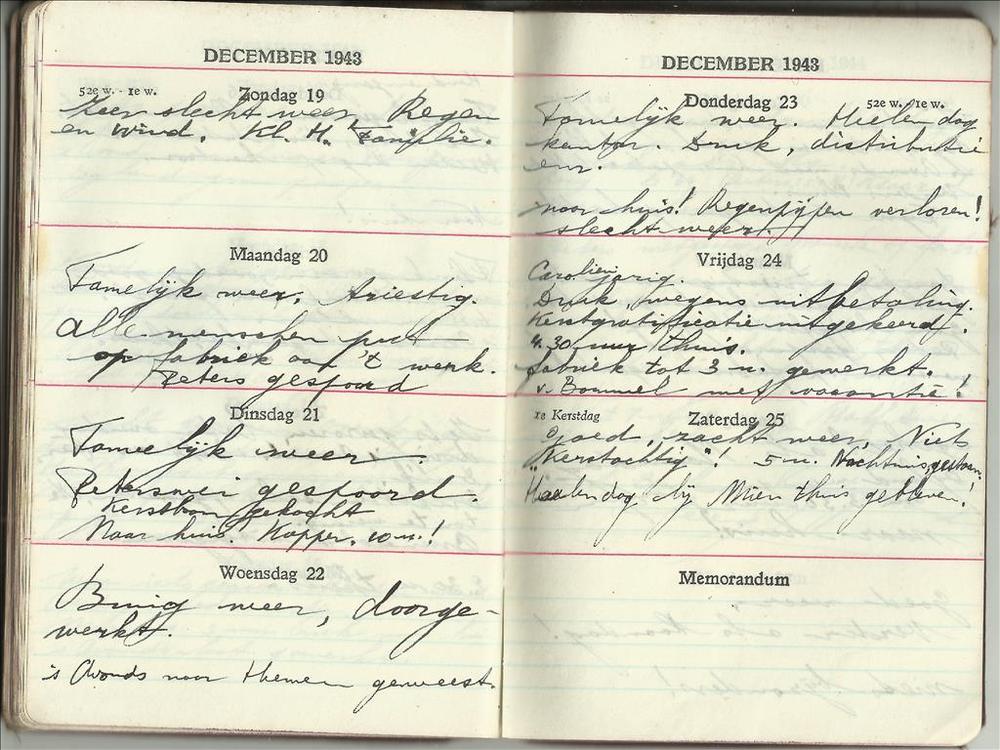 DECEMBER 1943
52e w. - 1e w.
Zondag 19
Zeer slecht weer, Regen
en wind. Kl. H. Familie.
Maandag 20
Tamelijk weer,
Alle menschen
op fabriek aan 't werk.
Peters gespoord
Dinsdag 21
Tamelijk weer.
gespoord.
Kerstboom gekocht
Naar huis! Kapper. 10 u.!
Woensdag 22
weer, doorge-
werkt.
's Avonds naar geweest.
DECEMBER 1943
Donderdag 23
52e w. - 1e w.
Tamelijk weer. Heelen dag
kantoor. Druk, distributie
enz.
naar huis! Regenpijpen verloren!
slecht weer!
Vrijdag 24
Carolien jarig.
Druk, wegens uitbetaling.
Kerstgratificatie uitgekeerd.
4.30 uur thuis.
fabriek tot 3 u. gewerkt.
v. Bommel met vacantie!
1e Kerstdag
Zaterdag 25
Goed, zacht weer, Niets
"Kerstachtig"! 5 u. Nachtmis
Heelen dag bij Mien thuis gebleven!
Memorandum